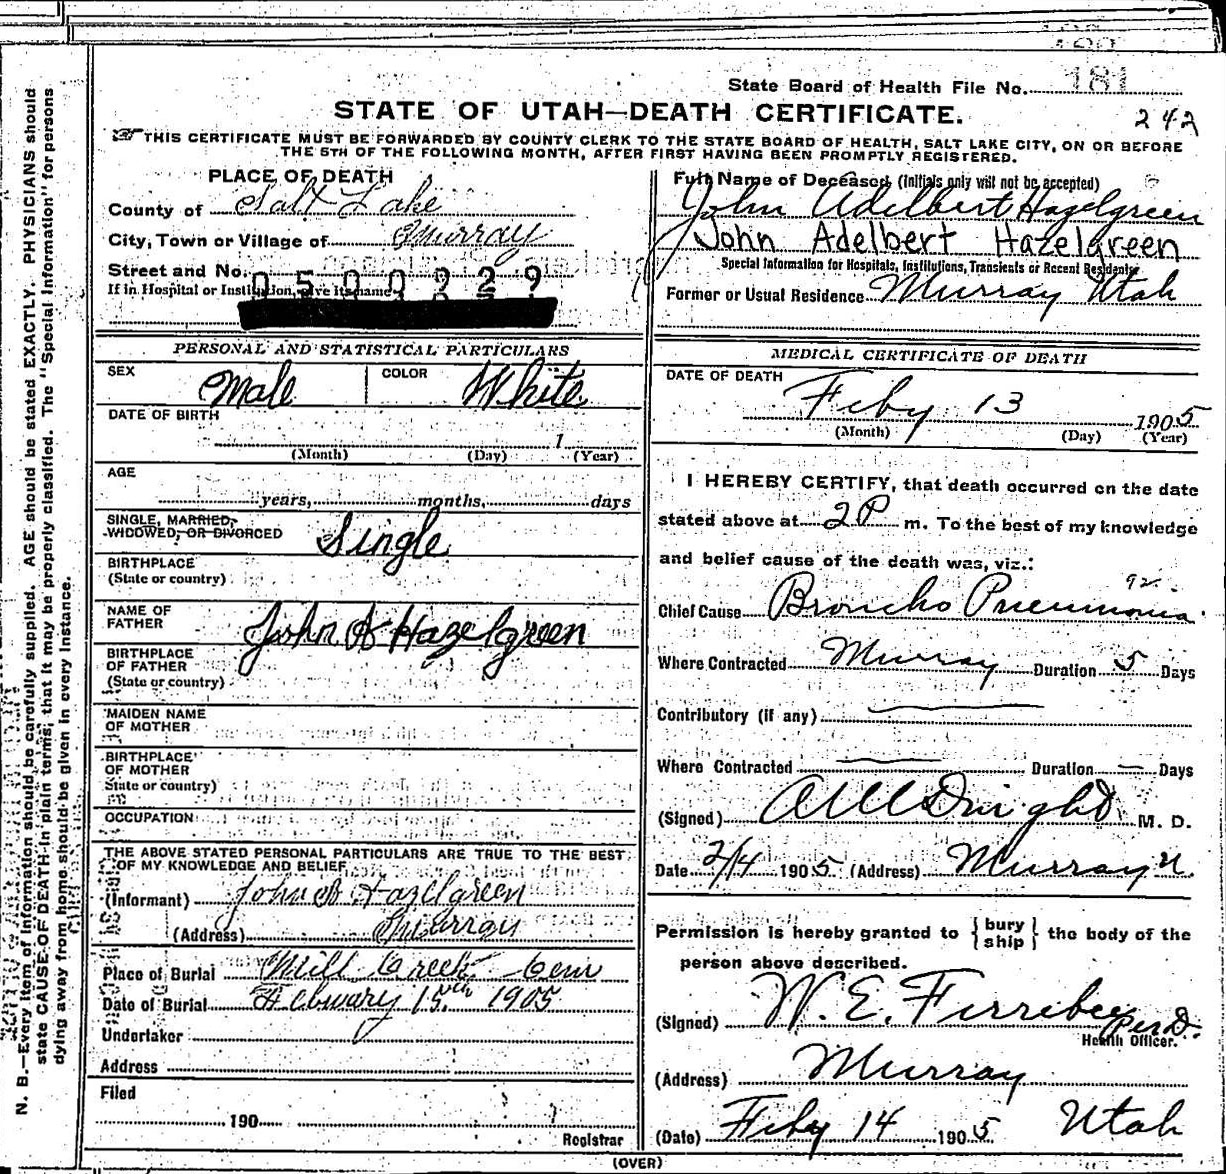 State Board of Health File No. 181
STATE OF UTAH—DEATH CERTIFICATE.
242
THIS CERTIFICATE MUST BE FORWARDED BY COUNTY CLERK TO THE STATE BOARD OF HEALTH, SALT LAKE CITY, ON OR BEFORE
THE 5TH OF THE FOLLOWING MONTH, AFTER FIRST HAVING BEEN PROMPTLY REGISTERED.
PLACE OF DEATH
County of Salt Lake
City, Town or Village of Murray
Street and No.
If in Hospital or Institution, give its name
Full Name of Deceased (Initials only will not be accepted)
John Adelbert Hazelgreen
John Adelbert Hazelgreen
Special Information for Hospitals, Institutions, Transients or Recent Residents
Former or Usual Residence Murray Utah
PERSONAL AND STATISTICAL PARTICULARS
SEX Male COLOR White
DATE OF BIRTH
1
(Month) (Day) (Year)
AGE
years, months, days
SINGLE, MARRIED,
WIDOWED, OR DIVORCED Single
BIRTHPLACE
(State or country)
NAME OF
FATHER John A Hazelgreen
BIRTHPLACE
OF FATHER
(State or country)
MAIDEN NAME
OF MOTHER
BIRTHPLACE
OF MOTHER
State or country)
OCCUPATION
THE ABOVE STATED PERSONAL PARTICULARS ARE TRUE TO THE BEST
OF MY KNOWLEDGE AND BELIEF
(Informant) John A Hazelgreen
(Address) Murray
Place of Burial Mill Creek Cem
Date of Burial Febuary 15th 1905
Undertaker
Address
Filed
190
Registrar
MEDICAL CERTIFICATE OF DEATH
DATE OF DEATH
Feby 13 1905
(Month) (Day) (Year)
I HEREBY CERTIFY, that death occurred on the date
stated above at 2 P m. To the best of my knowledge
and belief cause of the death was, viz.:
92
Chief Cause Broncho Pneumonia
Where Contracted Murray Duration 5 Days
Contributory (if any)
Where Contracted Duration — Days
(Signed) Dwight M. D.
Date 2/14 1905 (Address) Murray U.
Permission is hereby granted to {bury
ship} the body of the
person above described.
(Signed) W. E. Ferrebee
Per D.
Health Officer.
(Address) Murray
(Date) Feby 14 1905 Utah
(OVER)
N. B.—Every item of information should be carefully supplied. AGE should be stated EXACTLY. PHYSICIANS should
state CAUSE OF DEATH in plain terms, that it may be properly classified. The "Special Information" for persons
dying away from home should be given in every instance.